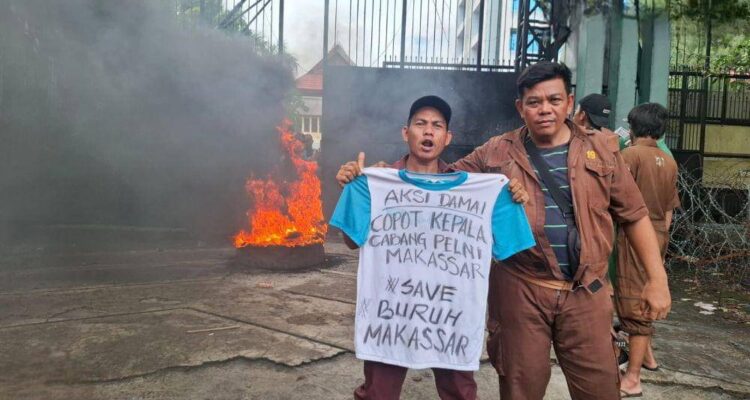 AKSI DAMAI
COPOT KEPALA
CABANG PELNI
MAKASSAR
# SAVE
# BURUH
MAKASSAR